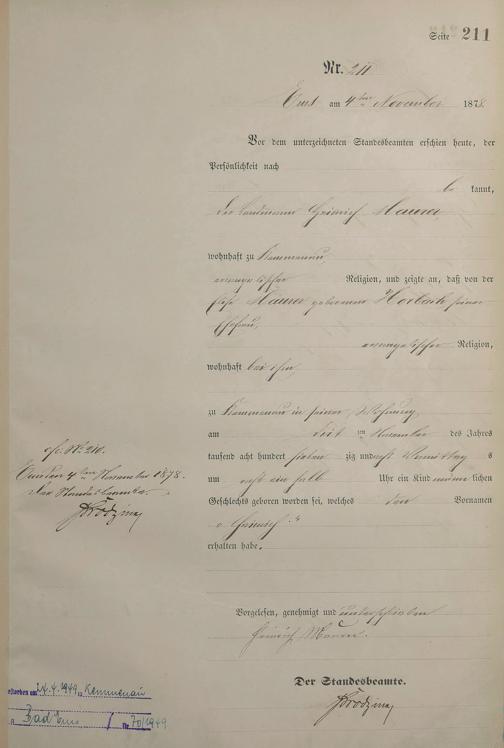 Seite 211
Nr. 211
Ems am 4ten November 1878.
Vor dem unterzeichneten Standesbeamten erschien heute, der
Persönlichkeit nach
be kannt,
der Landmann Heinrich Maurer,
wohnhaft zu Kemmenau,
evangelischer Religion, und zeigte an, daß von der
Maurer geborenen Horbach seiner
Ehefrau,
evangelischer Religion,
wohnhaft bei ihm,
zu Kemmenau in seiner Wohnung,
am November des Jahres
tausend acht hundert sieben zig und acht Vormittag s
um halb Uhr ein Kind männ lichen
Geschlechts geboren worden sei, welches den Vornamen
"Heinrich"
erhalten habe.
Vorgelesen, genehmigt und unterschrieben
Heinrich Maurer.
Der Standesbeamte.
No. 210.
Ems den 4ten November 1878.
Der Standesbeamte.
24.4.1949 in Kemmenau
Bad Ems Nr. 70/1949